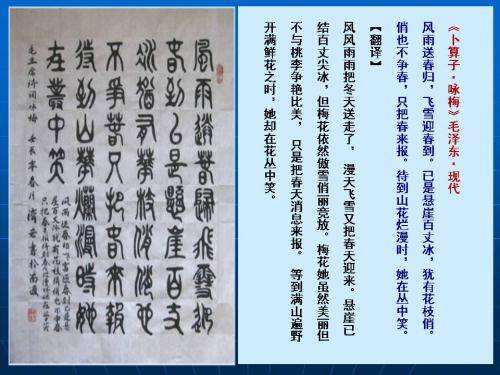 《卜算子·咏梅》毛泽东·现代
风雨送春归，飞雪迎春到。已是悬崖百丈冰，犹有花枝俏。
俏也不争春，只把春来报。待到山花烂漫时，她在丛中笑。
【翻译】
风风雨雨把冬天送走了， 漫天飞雪又把春天迎来。悬崖已
结百丈尖冰，但梅花依然傲雪俏丽竞放。梅花她虽然美丽但
不与桃李争艳比美， 只是把春天消息来报。 等到满山遍野
开满鲜花之时，她却在花丛中笑。
風雨送春歸飛雪迎
春到已是懸崖百丈
冰猶有花枝俏俏也
不爭春只把春來報
待到山花爛漫時她
在叢中笑
毛主席诗词咏梅